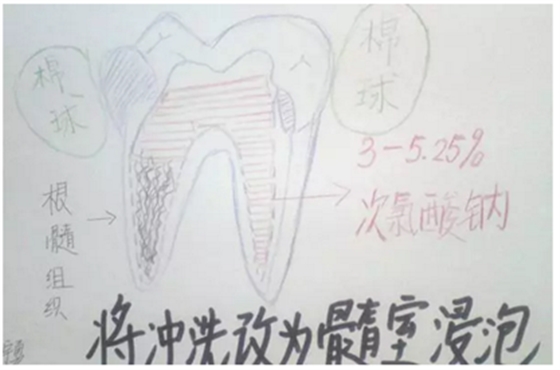 棉球
棉球
3-5.25%
次氯酸钠
根髓组织
将冲洗改为髓室浸泡